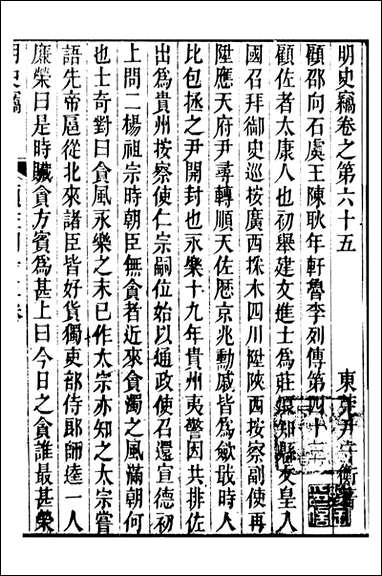 明史竊卷之第六十五
東莞尹守衡著
顧邵向石虞王陳耿年軒魯李列傳第四十三
顧佐者太康人也初舉建文進士為莊浪知縣文皇入
國召拜御史巡按廣西採木四川陞陝西按察副使再
陞應天府尹尋轉順天佐歷京兆勳戚皆為斂戢時人
比包拯之尹開封也永樂十九年貴州夷警因共排佐
出為貴州按察使仁宗嗣位始以通政使召還宣德初
上問二楊祖宗時朝臣無貪者近來貪濁之風滿朝何
也士奇對曰貪風永樂之末已作太宗亦知之太宗嘗
語先帝扈從北來諸臣皆好貨獨吏部侍郎師逵一人
廉榮曰是時贓貪方賓為甚上曰今日之貪誰最甚榮
明史竊